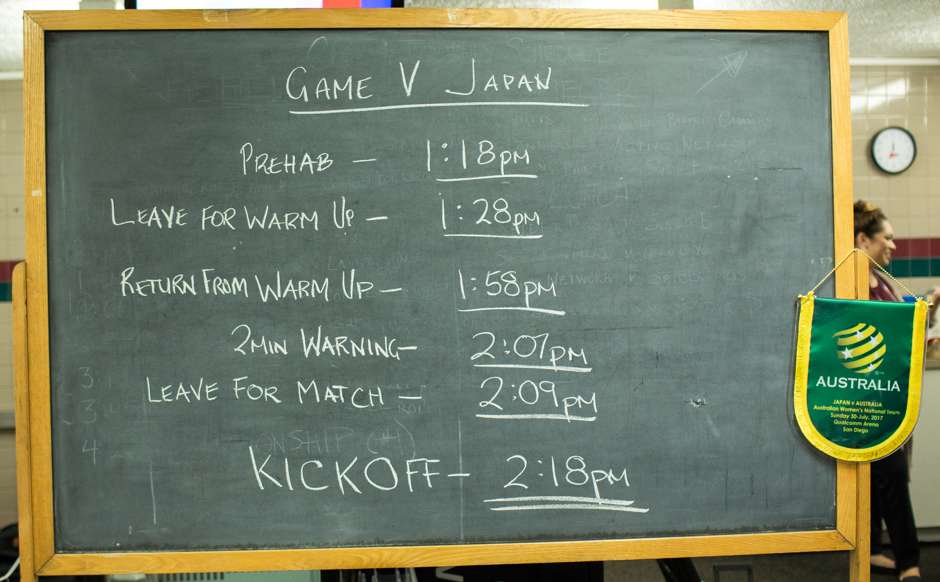 GAME V JAPAN
PREHAB – 1:18PM
LEAVE FOR WARM UP – 1:28PM
RETURN FROM WARM UP – 1:58PM
2MIN WARNING – 2:07PM
LEAVE FOR MATCH – 2:09PM
KICKOFF – 2:18PM
AUSTRALIA
JAPAN v AUSTRALIA
Australian Women's National Team
Sunday 30 July, 2017
Qualcomm Arena
San Diego